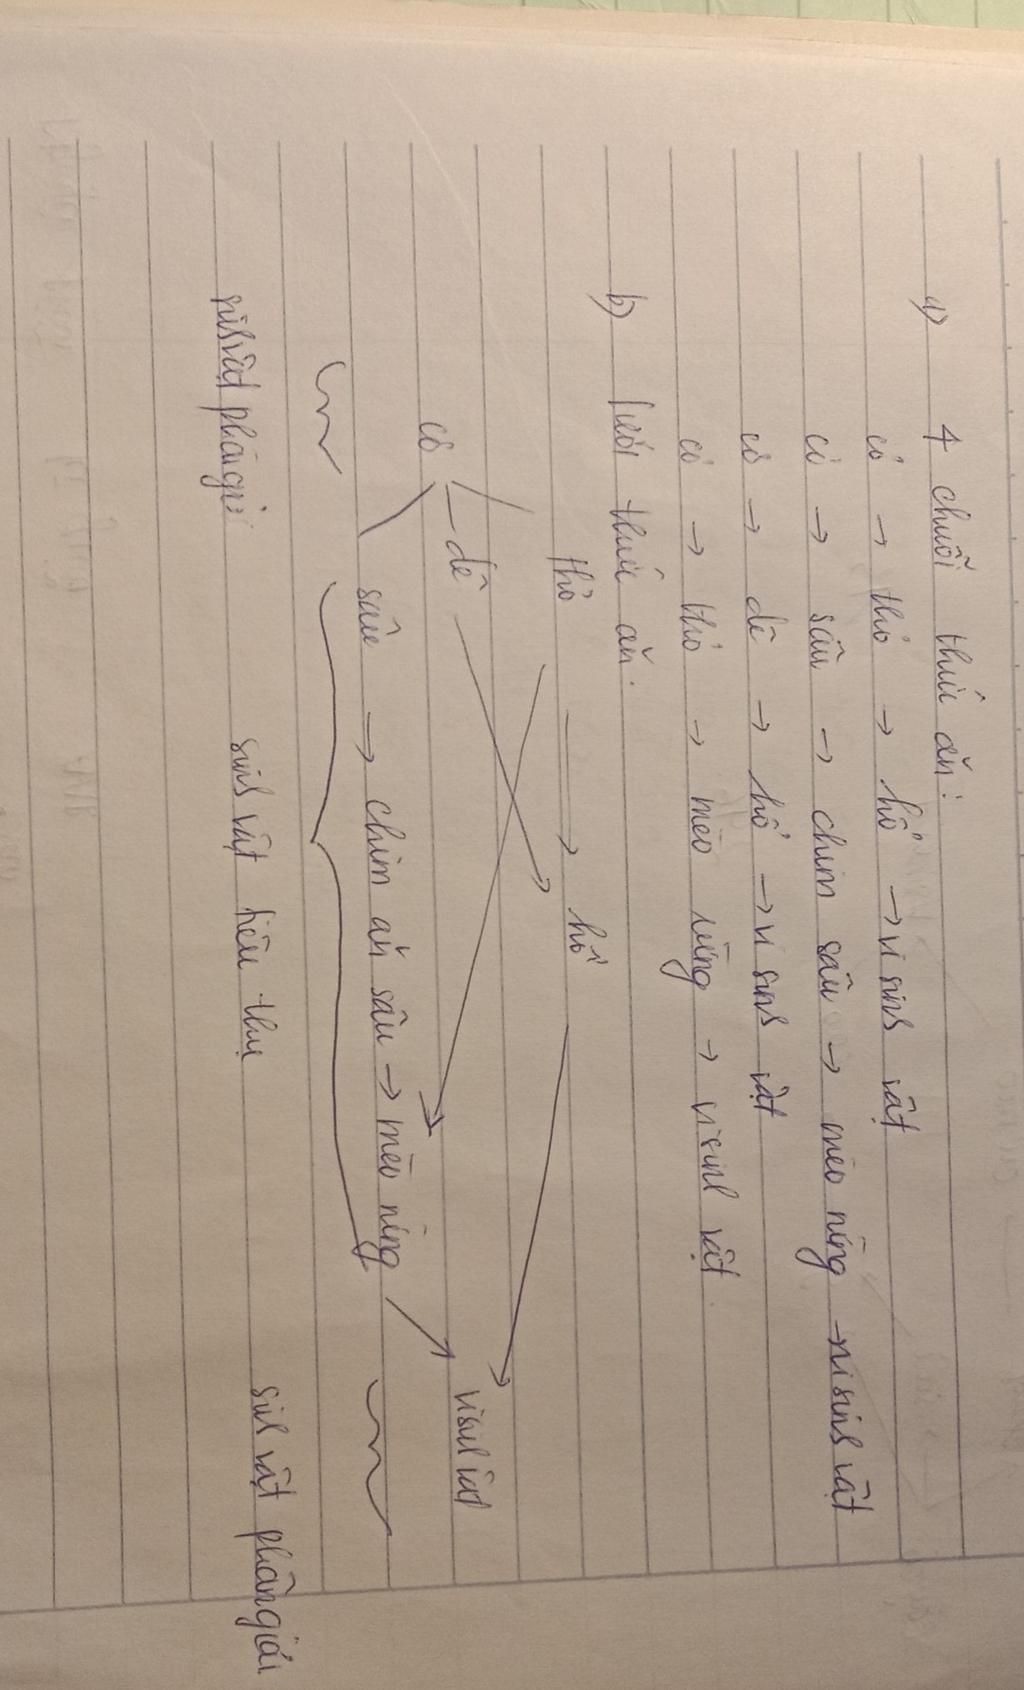 a) 4 chuỗi thức ăn:
cỏ → thỏ → hổ → vi sinh vật
cỏ → sâu → chim sâu → mèo rừng → vi sinh vật
cỏ → dê → hổ → vi sinh vật
cỏ → thỏ → mèo rừng → vi sinh vật.
b) lưới thức ăn.
thỏ → hổ
cỏ dê vi sinh vật
sâu → chim ăn sâu → mèo rừng
sinh vật tiêu thụ sinh vật phân giải